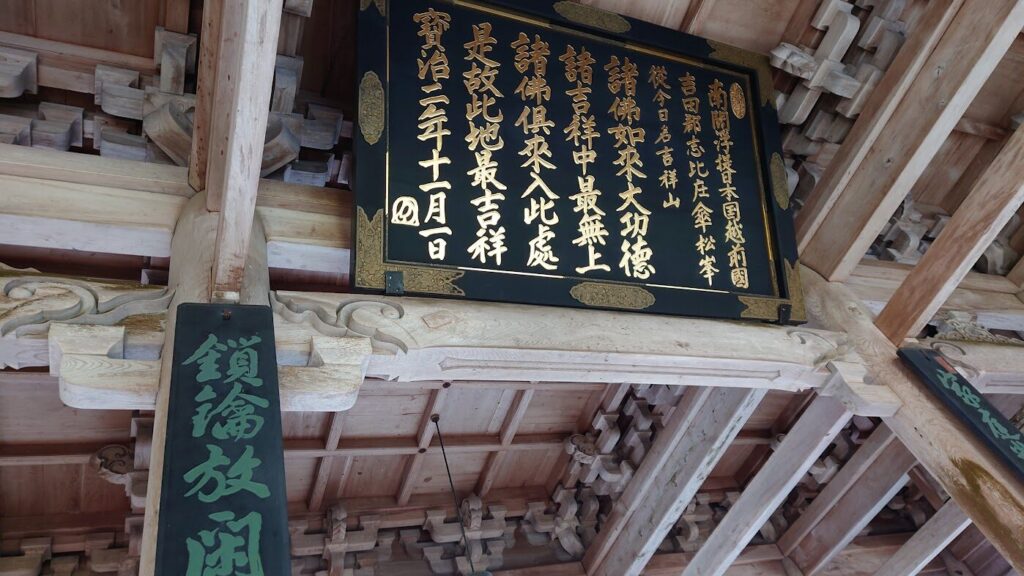 南閻浮提大日本国越前國
吉田郡志比庄傘松峯
從今日名吉祥山
諸佛如來大功德
諸吉祥中最無上
諸佛俱來入此處
是故此地最吉祥
寶治二年十一月一日
鎖鑰放閑